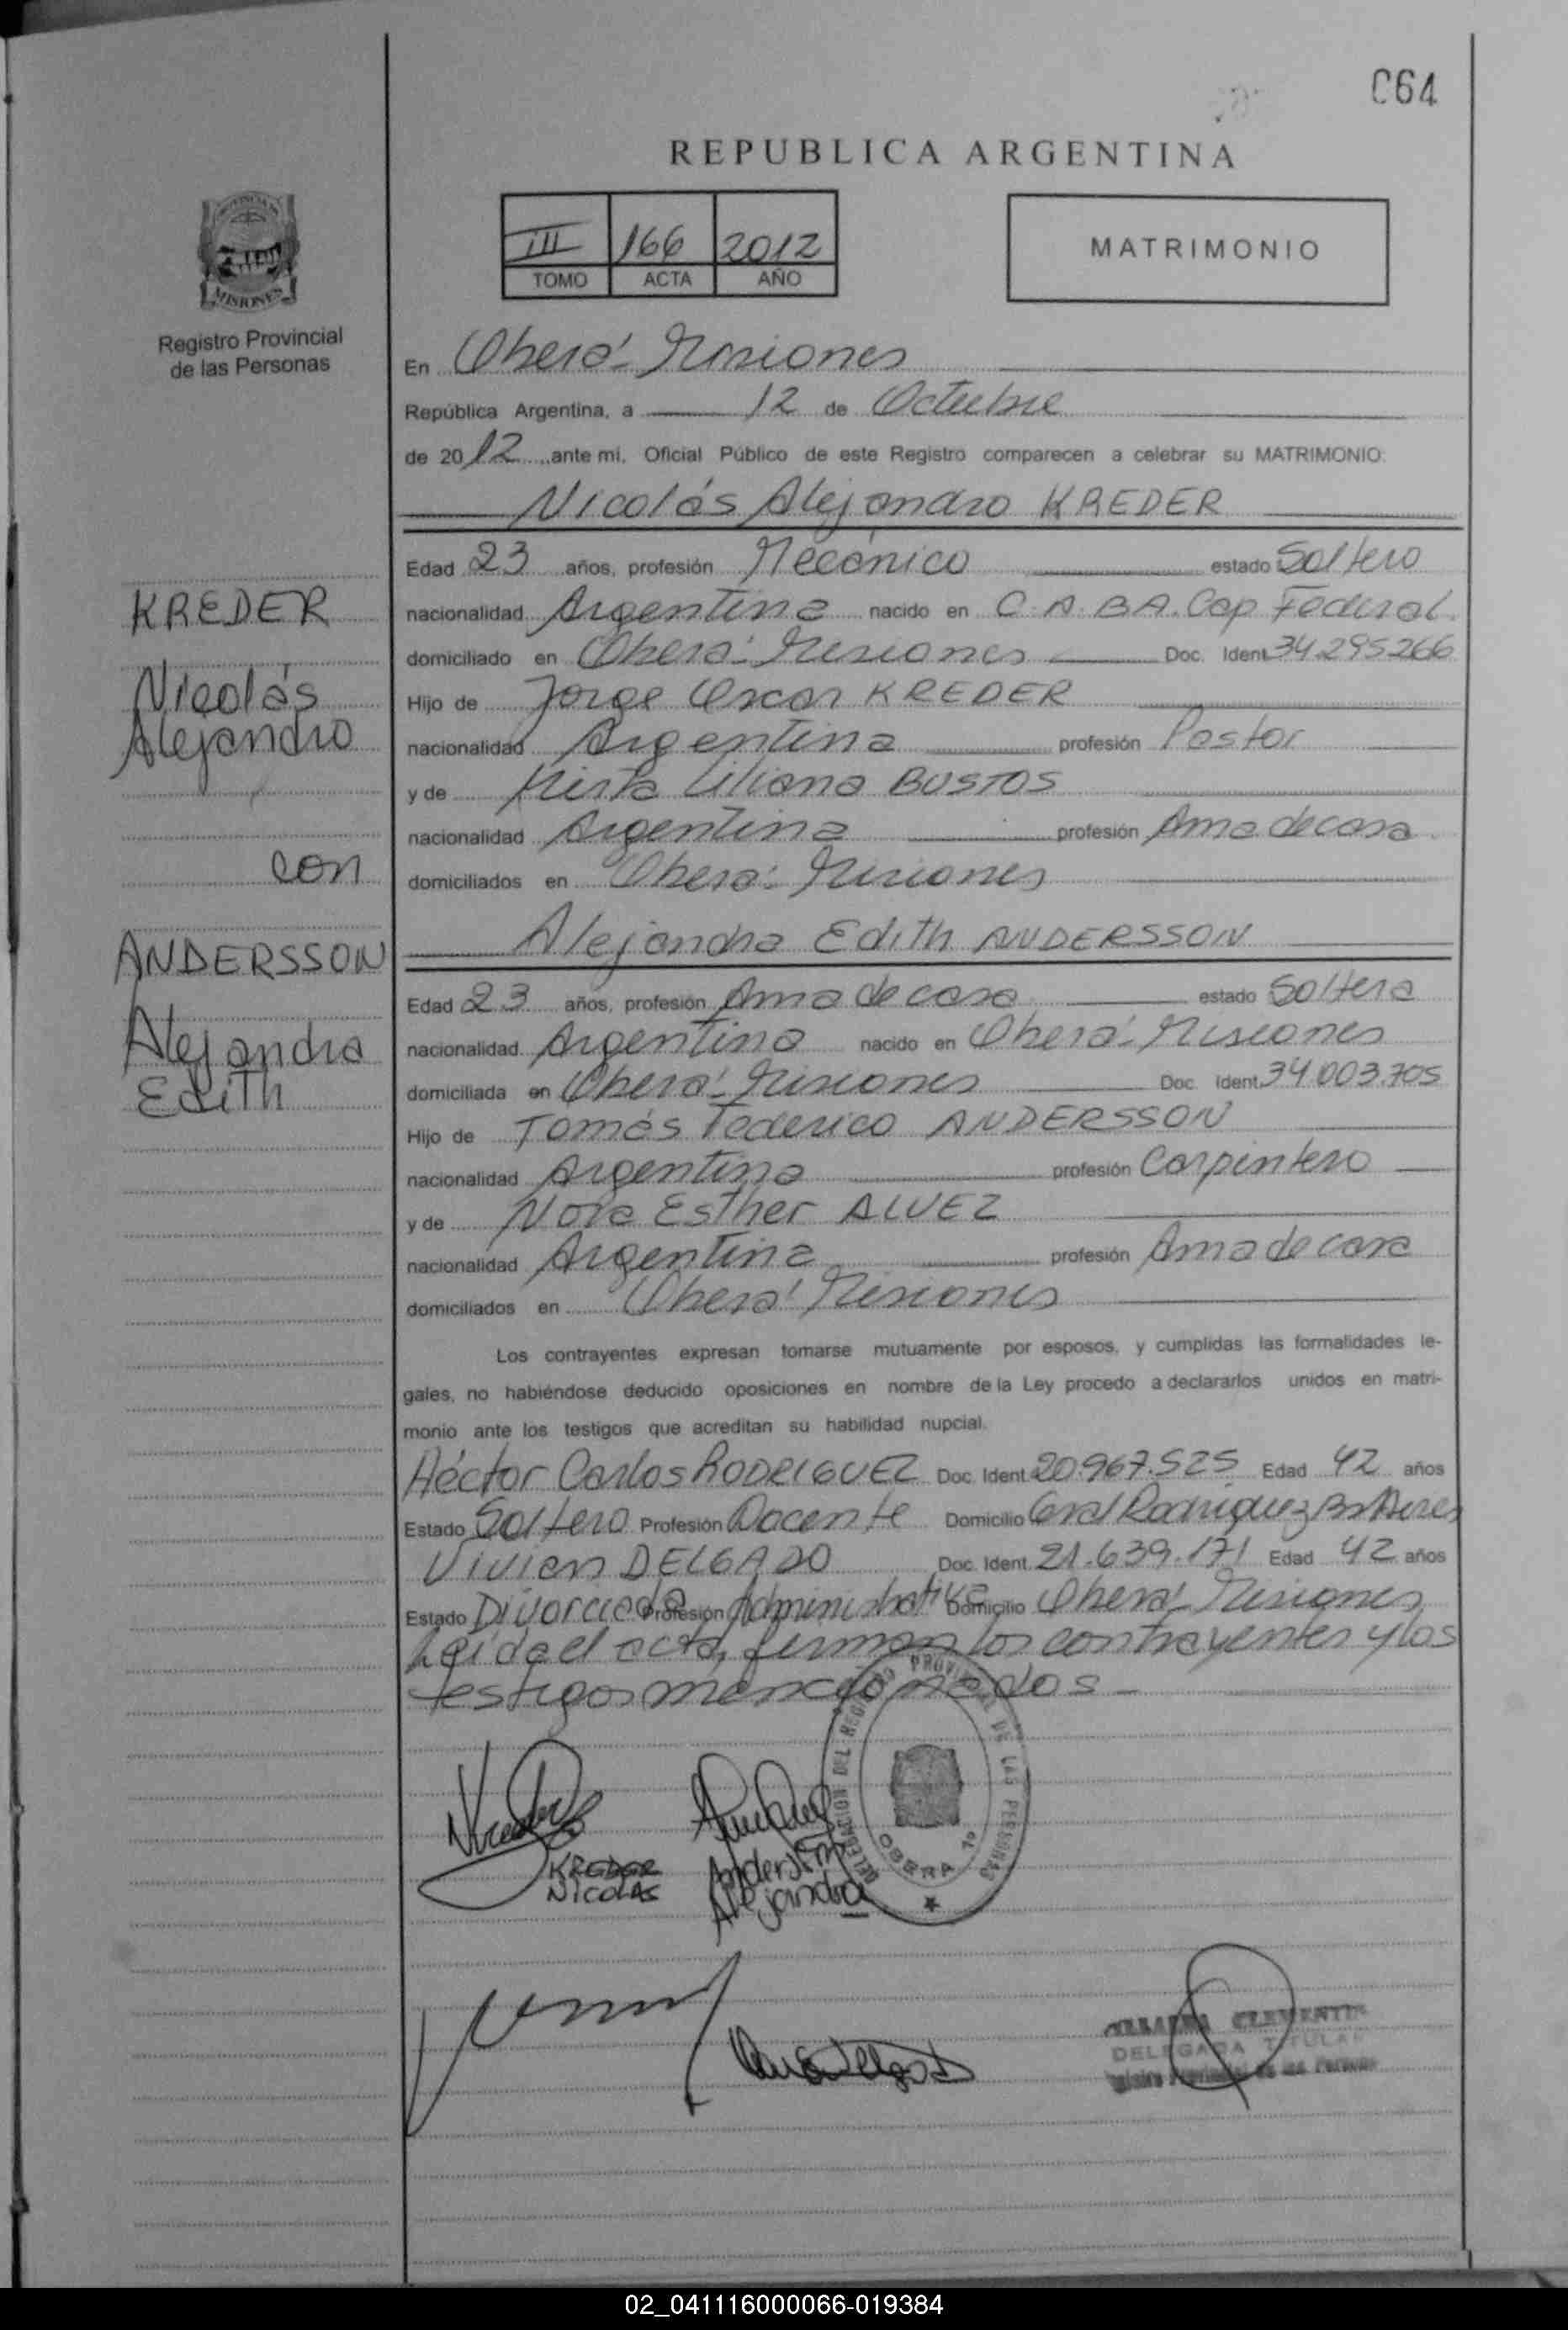 064
REPUBLICA ARGENTINA
PROVINCIA DE
MISIONES
Registro Provincial
de las Personas
III 166 2012
TOMO ACTA AÑO
MATRIMONIO
En Oberá - Misiones
República Argentina, a 12 de Octubre
de 2012 ante mi, Oficial Público de este Registro comparecen a celebrar su MATRIMONIO:
Nicolás Alejandro KREDER
Edad 23 años, profesión Mecánico estado Soltero
nacionalidad Argentina nacido en C.A.BA. Cap Federal
domiciliado en Oberá - Misiones Doc. Ident. 34.295.266
Hijo de Jorge Oscar KREDER
nacionalidad Argentina profesión Pastor
y de Mirta Liliana BUSTOS
nacionalidad Argentina profesión Ama de casa
domiciliados en Oberá - Misiones
KREDER
Nicolás
Alejandro
con
ANDERSSON
Alejandra
Edith
Alejandra Edith ANDERSSON
Edad 23 años, profesión Ama de casa estado Soltera
nacionalidad Argentina nacido en Oberá - Misiones
domiciliada en Oberá - Misiones Doc. Ident. 34.003.705
Hijo de Tomás Federico ANDERSSON
nacionalidad Argentina profesión Carpintero
y de Nora Esther ALVEZ
nacionalidad Argentina profesión Ama de casa
domiciliados en Oberá - Misiones
Los contrayentes expresan tomarse mutuamente por esposos, y cumplidas las formalidades le-
gales, no habiéndose deducido oposiciones en nombre de la Ley procedo a declararlos unidos en matri-
monio ante los testigos que acreditan su habilidad nupcial.
Héctor Carlos RODRIGUEZ Doc. Ident. 20.967.525 Edad 42 años
Estado Soltero Profesión Docente Domicilio Gral Rodriguez Bs Aires
Vivian DELGADO Doc. Ident. 21.639.171 Edad 42 años
Estado Divorciada Profesión Administrativa Domicilio Oberá - Misiones
Leída el acta, firman los contrayentes y los
testigos mencionados -
DELEGACION DEL REGISTRO PROVINCIAL DE LAS PERSONAS
OBERA 1º
Kreder
KREDER
NICOLAS
Andersson
Alejandra
CLEMENTIN
DELEGADA TITULAR
Registro Provincial de las Personas
02_041116000066-019384